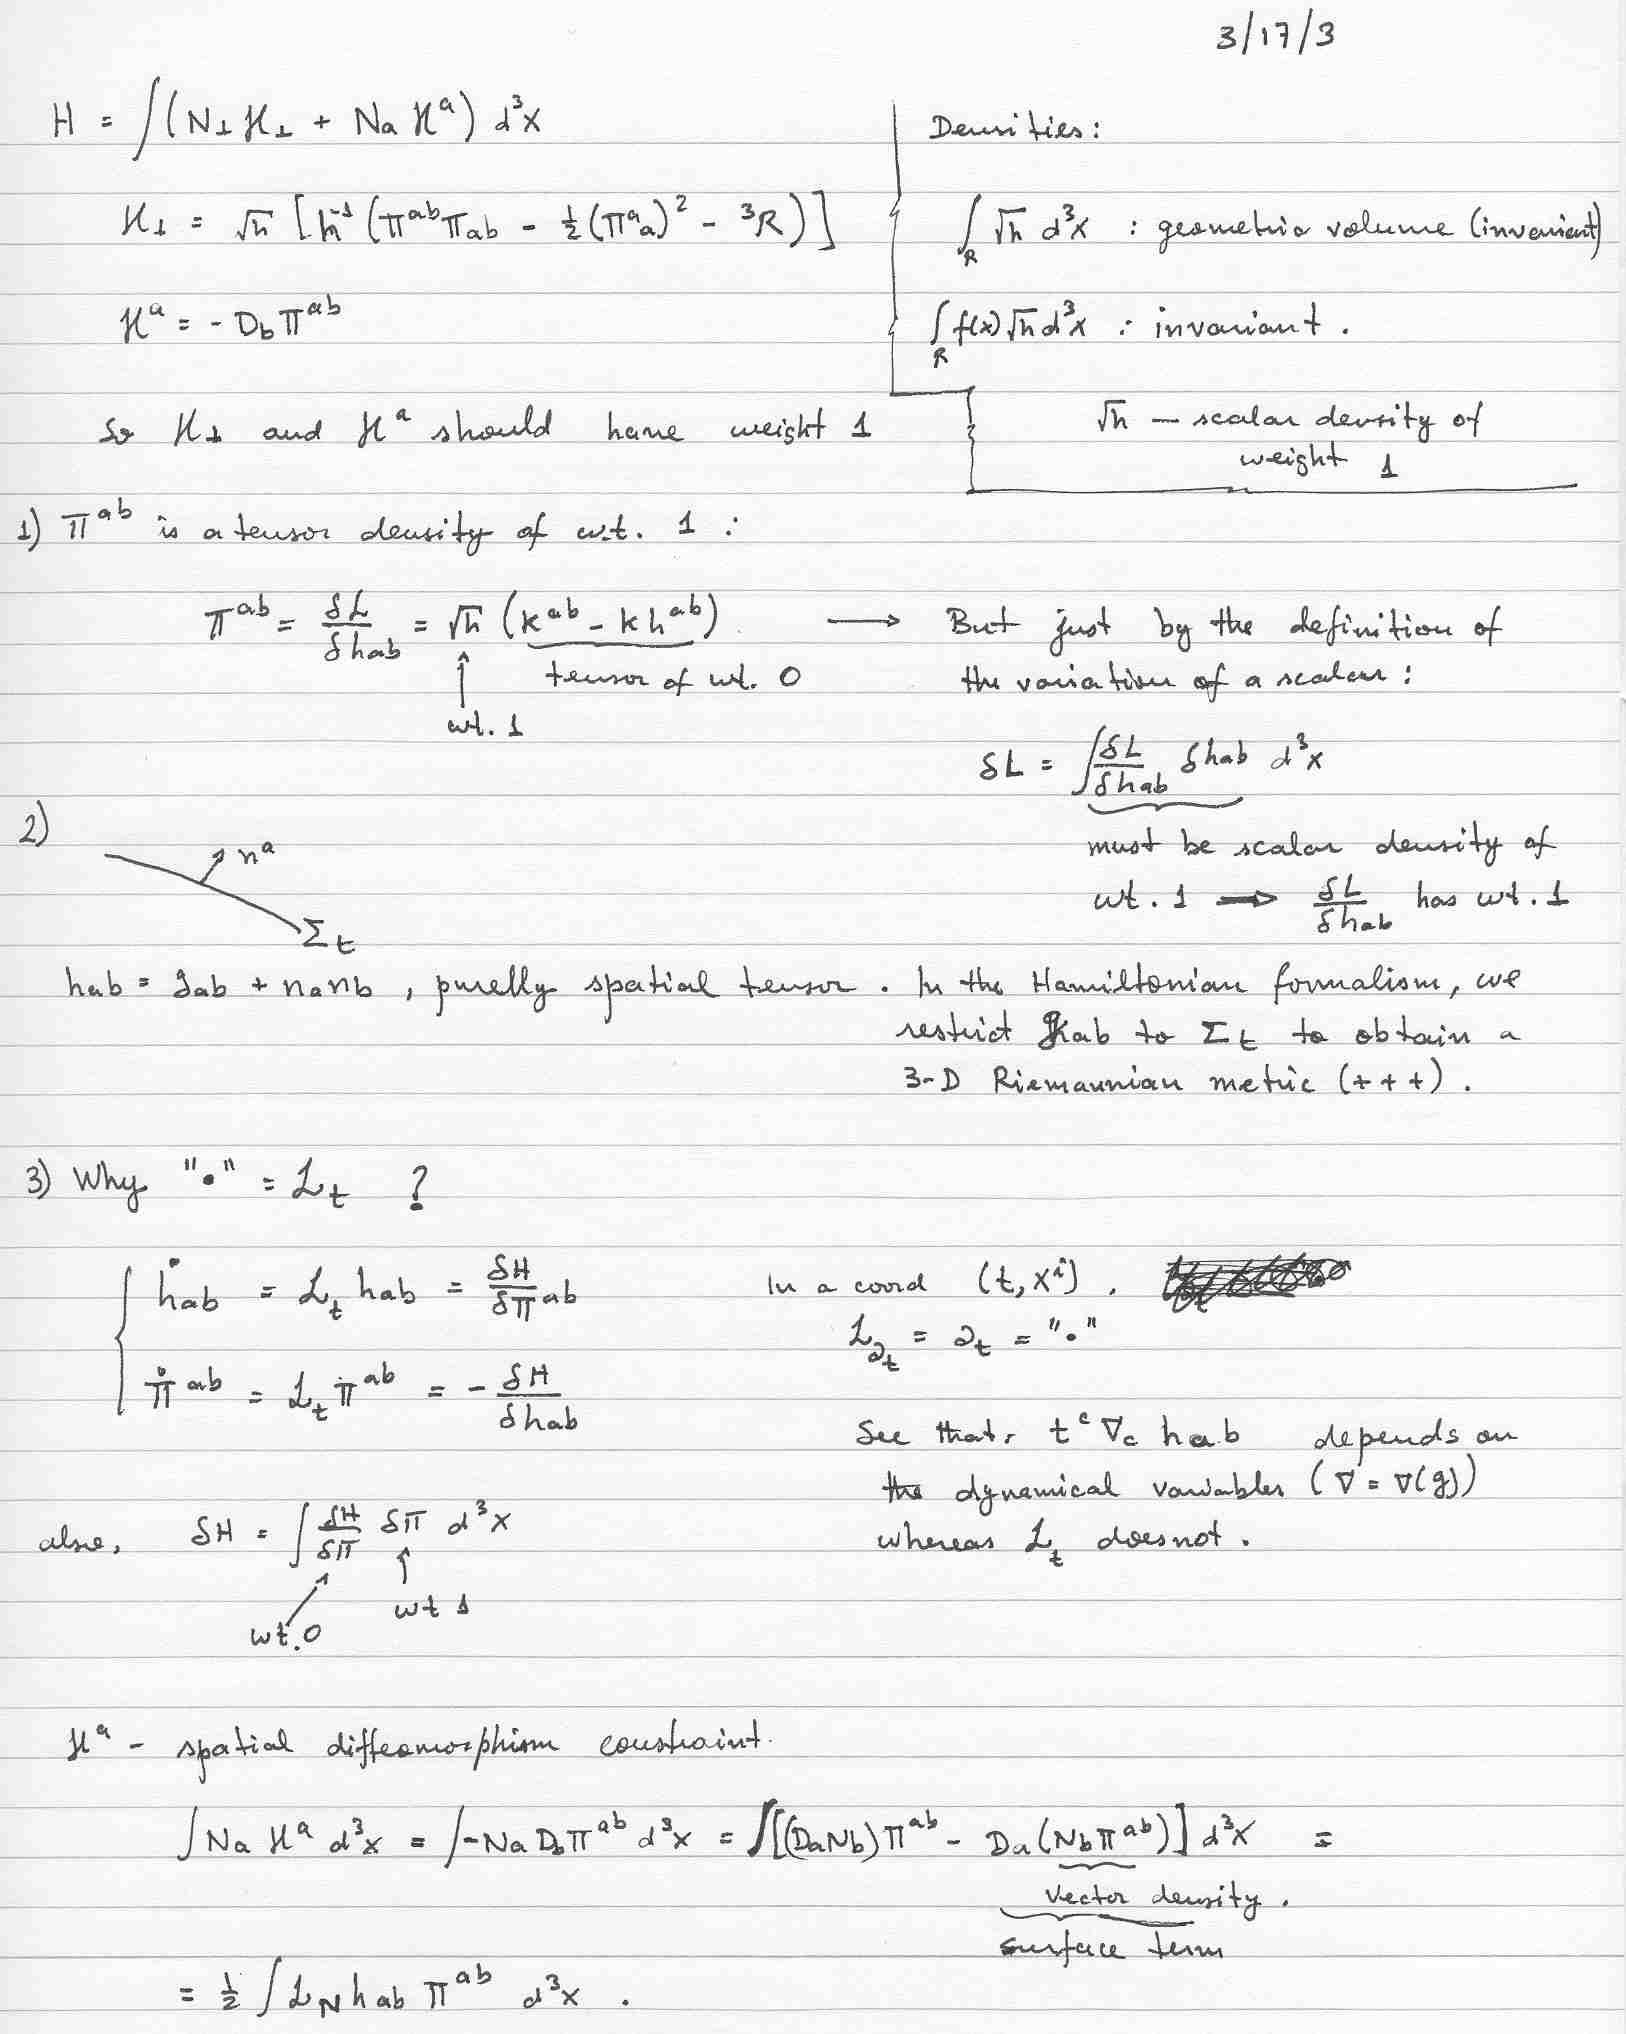 3/17/3
H = ∫(N⊥ℋ⊥ + Na ℋᵃ) d³x
ℋ⊥ = √h [h⁻¹(πᵃᵇπab - ½(πᵃa)² - ³R)]
ℋᵃ = - Db πᵃᵇ
So ℋ⊥ and ℋᵃ should have weight 1
Densities:
∫R √h d³x : geometric volume (invariant)
∫R f(x)√h d³x : invariant.
√h — scalar density of
weight 1
1) πᵃᵇ is a tensor density of wt. 1 :
πᵃᵇ = δL/δhab = √h (Kᵃᵇ - K hᵃᵇ) ⟶
tensor of wt. 0
wt. 1
But just by the definition of
the variation of a scalar:
δL = ∫ δL/δhab δhab d³x
must be scalar density of
wt. 1 ⟹ δL/δhab has wt. 1
2)
nᵃ
Σt
hab = gab + nanb , purelly spatial tensor . In the Hamiltonian formalism, we
restrict hab to Σt to obtain a
3-D Riemannian metric (+++) .
3) Why "•" = ℒt ?
ḣab = ℒt hab = δH/δπᵃᵇ
π̇ᵃᵇ = ℒt πᵃᵇ = - δH/δhab
In a coord (t, xⁱ) .
ℒ∂t = ∂t = "•"
See that, tᶜ∇c hab depends on
the dynamical variables (∇ = ∇(g))
whereas ℒt does not .
also, δH = ∫ δH/δπ δπ d³x
wt 1
wt. 0
ℋᵃ - spatial diffeomorphism constraint.
∫ Na ℋᵃ d³x = ∫ -Na Db πᵃᵇ d³x = ∫[(DaNb)πᵃᵇ - Da(Nbπᵃᵇ)] d³x =
vector density .
surface term
= ½ ∫ ℒN hab πᵃᵇ d³x .